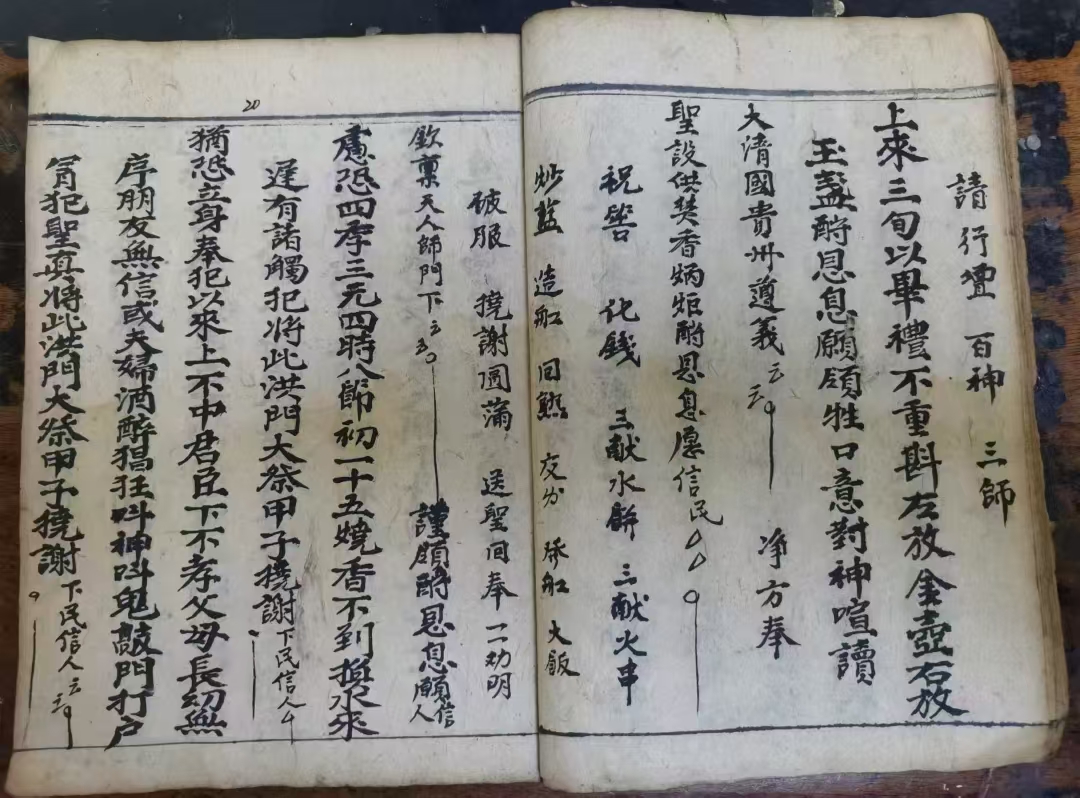 請行壇 百神 三師
上來三旬以畢禮不重斟左放金壺右放
玉盞酧恩息願領牲口意對神喧讀
大清國貴州遵義云云 净方奉
聖設供焚香炳炬酧恩息愿信民厶厶
祝告 化錢 三献水餅 三献火串
炒盐 造船 回熟 交分 發船 大飯
破服 撓謝圓滿 送聖回奉一一功明
20
欽稟天人師門下云云 謹領酧恩息願信人
慮恐四季三元四時八節初一十五燒香不到換水來
遲有諸觸犯將此洪門大祭甲子撓謝下民信人厶
猶恐立身奉犯以來上不中君臣下不孝父母長幼無
序朋友無信或夫婦酒醉猖狂呌神呌鬼敲門打户
冐犯聖真將此洪門大祭甲子撓謝下民信人云云